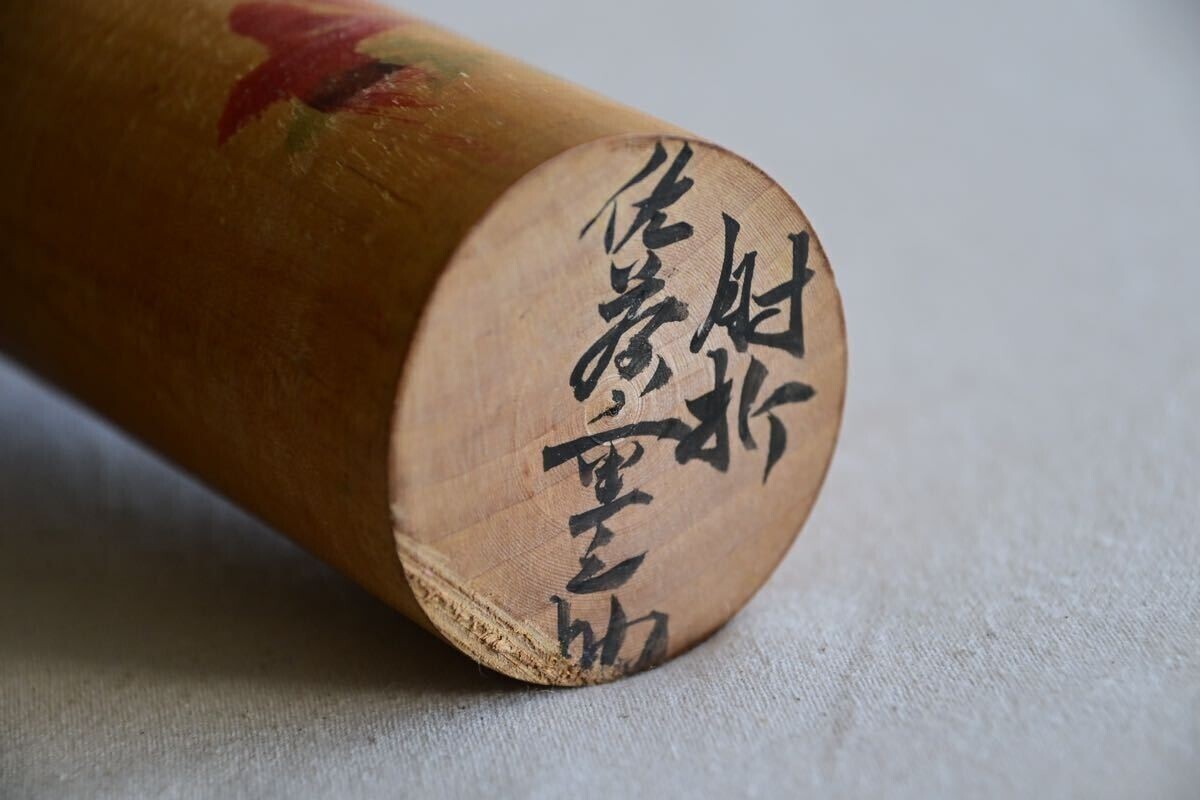 肘折
佐藤重之助